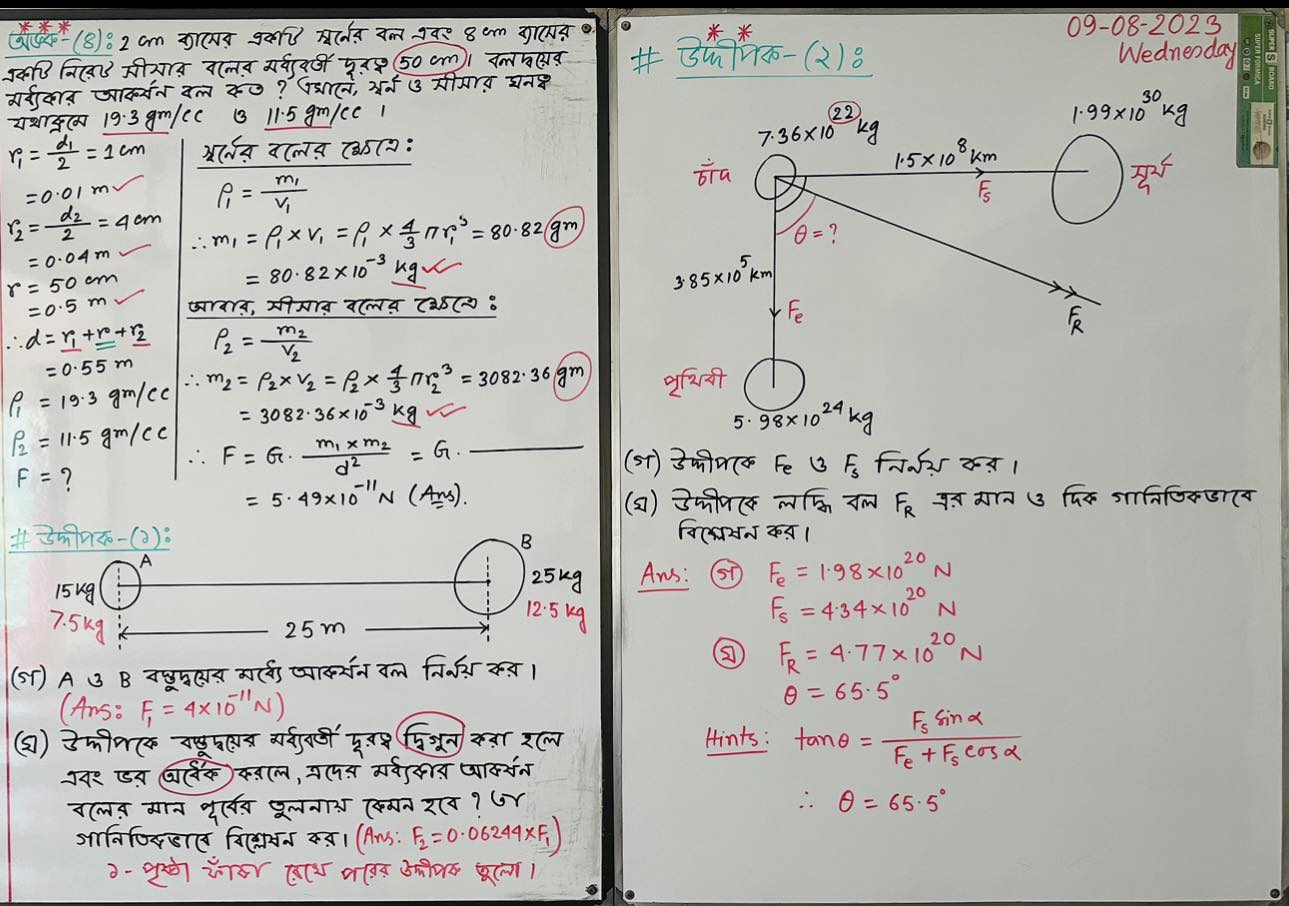 অংক-(৪): 2 cm ব্যাসের একটি স্বর্নের বল এবং 8 cm ব্যাসের
একটি নিরেট সীসার বলের মর্ধ্যবর্তী দূরত্ব 50 cm। বলদ্বয়ের
মর্ধ্যকার আকর্ষন বল কত? এখানে, স্বর্ন ও সীসার ঘনত্ব
যথাক্রমে 19.3 gm/cc ও 11.5 gm/cc ।
r₁ = d₁/2 = 1 cm
= 0.01 m
r₂ = d₂/2 = 4 cm
= 0.04 m
r = 50 cm
= 0.5 m
∴ d = r₁ + r + r₂
= 0.55 m
ρ₁ = 19.3 gm/cc
ρ₂ = 11.5 gm/cc
F = ?
স্বর্নের বলের ক্ষেত্রে:
ρ₁ = m₁/V₁
∴ m₁ = ρ₁ × V₁ = ρ₁ × 4/3 πr₁³ = 80.82 gm
= 80.82 × 10⁻³ kg
আবার, সীসার বলের ক্ষেত্রে:
ρ₂ = m₂/V₂
∴ m₂ = ρ₂ × V₂ = ρ₂ × 4/3 πr₂³ = 3082.36 gm
= 3082.36 × 10⁻³ kg
∴ F = G. (m₁ × m₂)/d² = G.
= 5.49 × 10⁻¹¹ N (Ans).
# উদ্দীপক-(১):
A
B
15 kg
25 kg
7.5 kg
12.5 kg
25 m
(গ) A ও B বস্তুদ্বয়ের মর্ধ্যে আকর্ষন বল নির্নয় কর।
(Ans: F₁ = 4 × 10⁻¹¹ N)
(ঘ) উদ্দীপকে বস্তুদ্বয়ের মর্ধ্যবর্তী দূরত্ব দ্বিগুন করা হলে
এবং ভর অর্ধেক করলে, এদের মর্ধ্যকার আকর্ষন
বলের মান পূর্বের তুলনায় কেমন হবে? তা
গানিতিকভাবে বিশ্লেষন কর। (Ans: F₂ = 0.06244 × F₁)
১- পৃষ্ঠা ফাঁকা রেখে পরের উদ্দীপক তুলো।
09-08-2023
Wednesday
SUPER S BOARD
SUPER FORMICA
# উদ্দীপক-(২):
7.36 × 10²² kg
1.99 × 10³⁰ kg
চাঁদ
1.5 × 10⁸ km
সূর্য
Fₛ
θ = ?
3.85 × 10⁵ km
Fₑ
F_R
পৃথিবী
5.98 × 10²⁴ kg
(গ) উদ্দীপকে Fₑ ও Fₛ নির্নয় কর।
(ঘ) উদ্দীপকে লদ্ধি বল F_R এর মান ও দিক গানিতিকভাবে
বিশ্লেষন কর।
Ans: (গ) Fₑ = 1.98 × 10²⁰ N
Fₛ = 4.34 × 10²⁰ N
(ঘ) F_R = 4.77 × 10²⁰ N
θ = 65.5°
Hints: tanθ = Fₛ sinα / (Fₑ + Fₛ cosα)
∴ θ = 65.5°